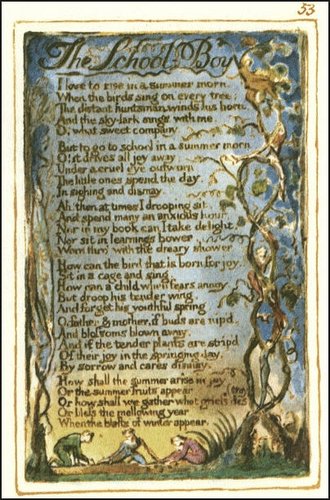 53
The School Boy
I love to rise in a summer morn,
When the birds sing on every tree;
The distant huntsman winds his horn,
And the sky-lark sings with me.
O! what sweet company.
But to go to school in a summer morn
O! it drives all joy away
Under a cruel eye outworn
The little ones spend the day,
In sighing and dismay.
Ah! then at times I drooping sit,
And spend many an anxious hour.
Nor in my book can I take delight,
Nor sit in learnings bower,
Worn thro' with the dreary shower
How can the bird that is born for joy,
Sit in a cage and sing.
How can a child when fears annoy
But droop his tender wing,
And forget his youthful spring
O! father & mother, if buds are nip'd,
And blossoms blown away,
And if the tender plants are strip'd
Of their joy in the springing day,
By sorrow and cares dismay,
How shall the summer arise in joy
Or the summer fruits appear
Or how shall we gather what griefs des
troy
Or bless the mellowing year,
When the blasts of winter appear.